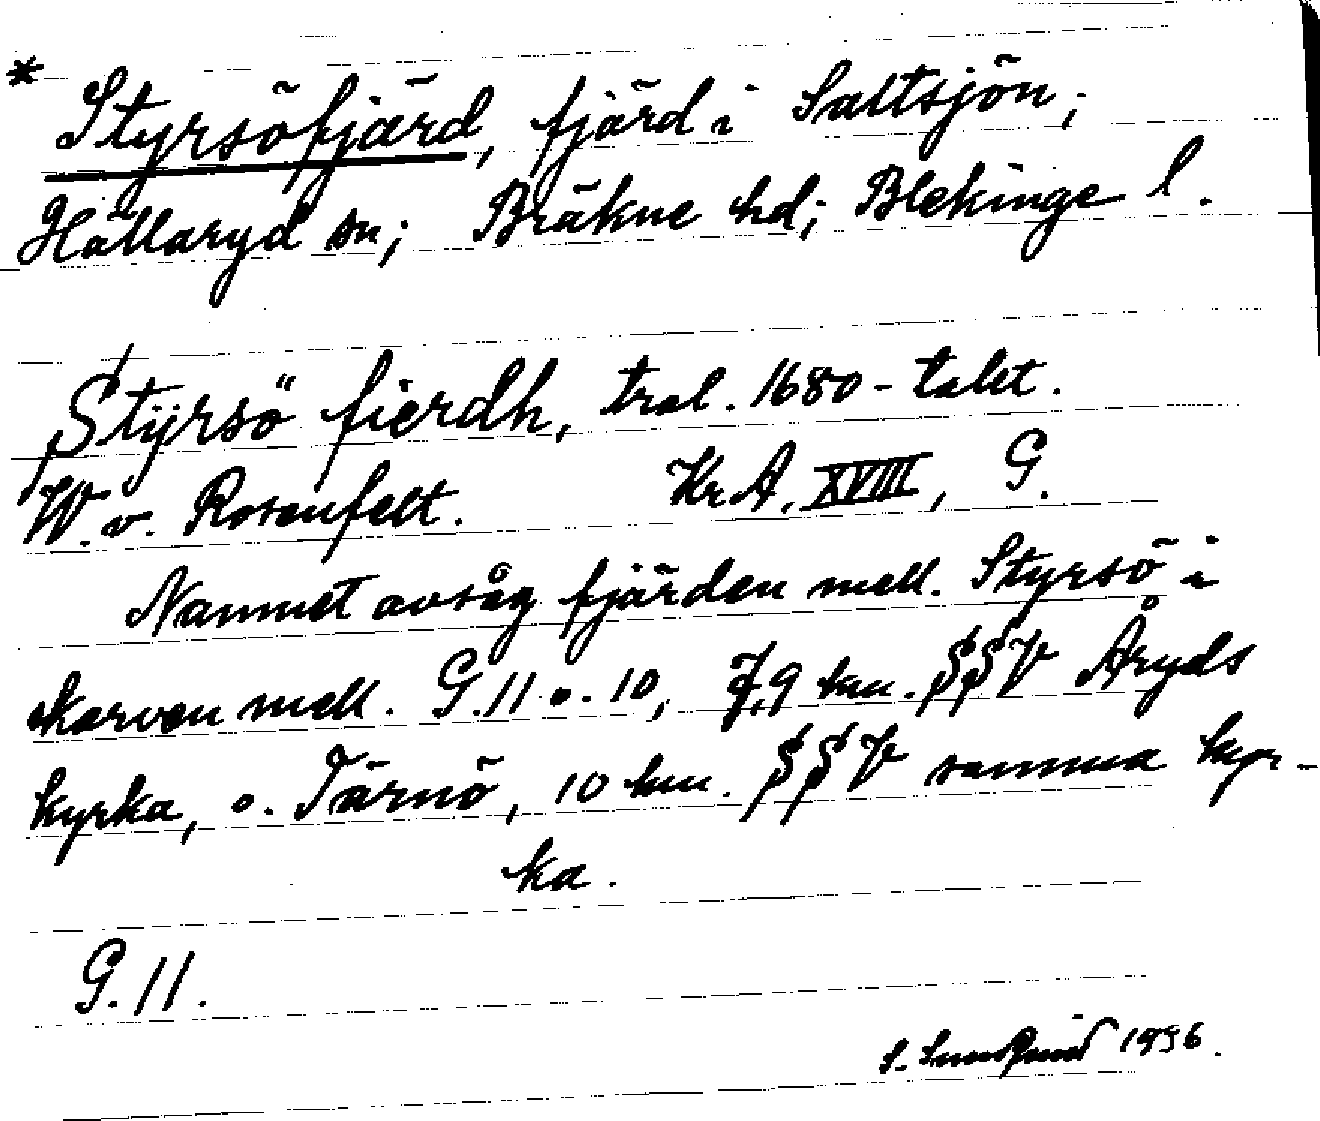 * Styrsöfjärd, fjärd i Saltsjön;
Hällaryd sn; Bräkne hd; Blekinge l.
Stÿrsö fierdh, trol. 1680-talet.
W. v. Rosenfelt. Kr.A. XVIII, G.
Namnet avsåg fjärden mell. Styrsö i
skarven mell. G.11 o. 10, 7,9 km. SSV Åryds
kyrka, o. Tärnö, 10 km. SSV samma kyr-
ka.
G.11.
S. 1936.